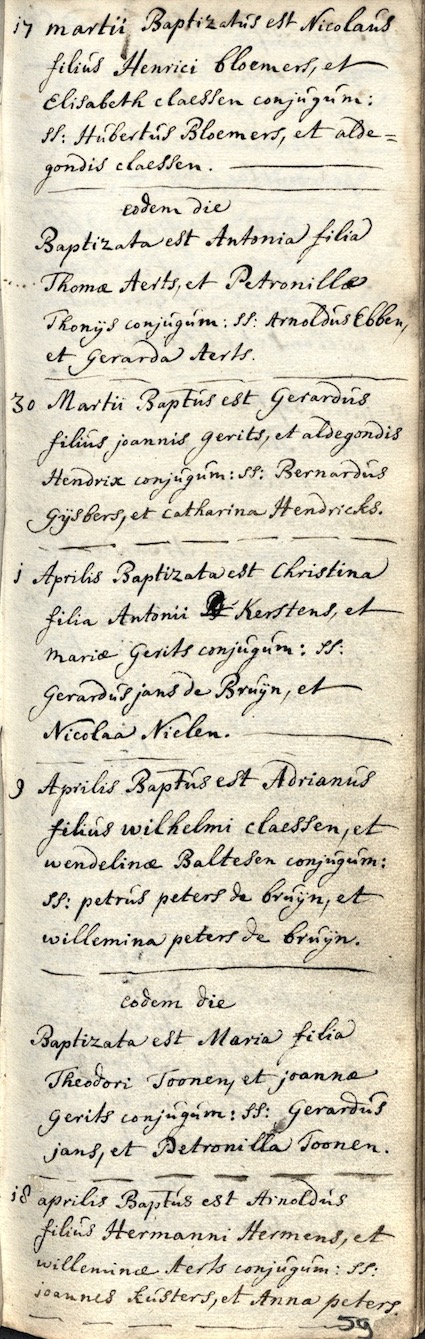 17 martii Baptizatus est Nicolaus
filius Henrici bloemers, et
Elisabeth claessen conjugum:
ss: Hubertus Bloemers, et alde=
gondis claessen.
eodem die
Baptizata est Antonia filia
Thomæ Aerts, et Petronillæ
Thonijs conjugum: ss: Arnoldus Ebben,
et Gerarda Aerts.
30 Martii Baptus est Gerardus
filius joannis Gerits, et aldegondis
Hendrix conjugum: ss: Bernardus
Gijsbers, et Catharina Hendricks.
1 Aprilis Baptizata est Christina
filia Antonii Kerstens, et
mariæ Gerits conjugum: ss:
Gerardus jans de Bruijn, et
Nicolaa Nielen.
9 Aprilis Baptus est Adrianus
filius wilhelmi claessen, et
wendelinæ Baltesen conjugum:
ss: petrus peters de bruijn, et
willemina peters de bruijn.
eodem die
Baptizata est Maria filia
Theodori Toonen, et joannæ
Gerits conjugum: ss: Gerardus
jans, et Petronilla Toonen.
18 aprilis Baptus est Arnoldus
filius Hermanni Hermens, et
willeminæ Aerts conjugum: ss:
joannes kusters, et Anna peters.
59